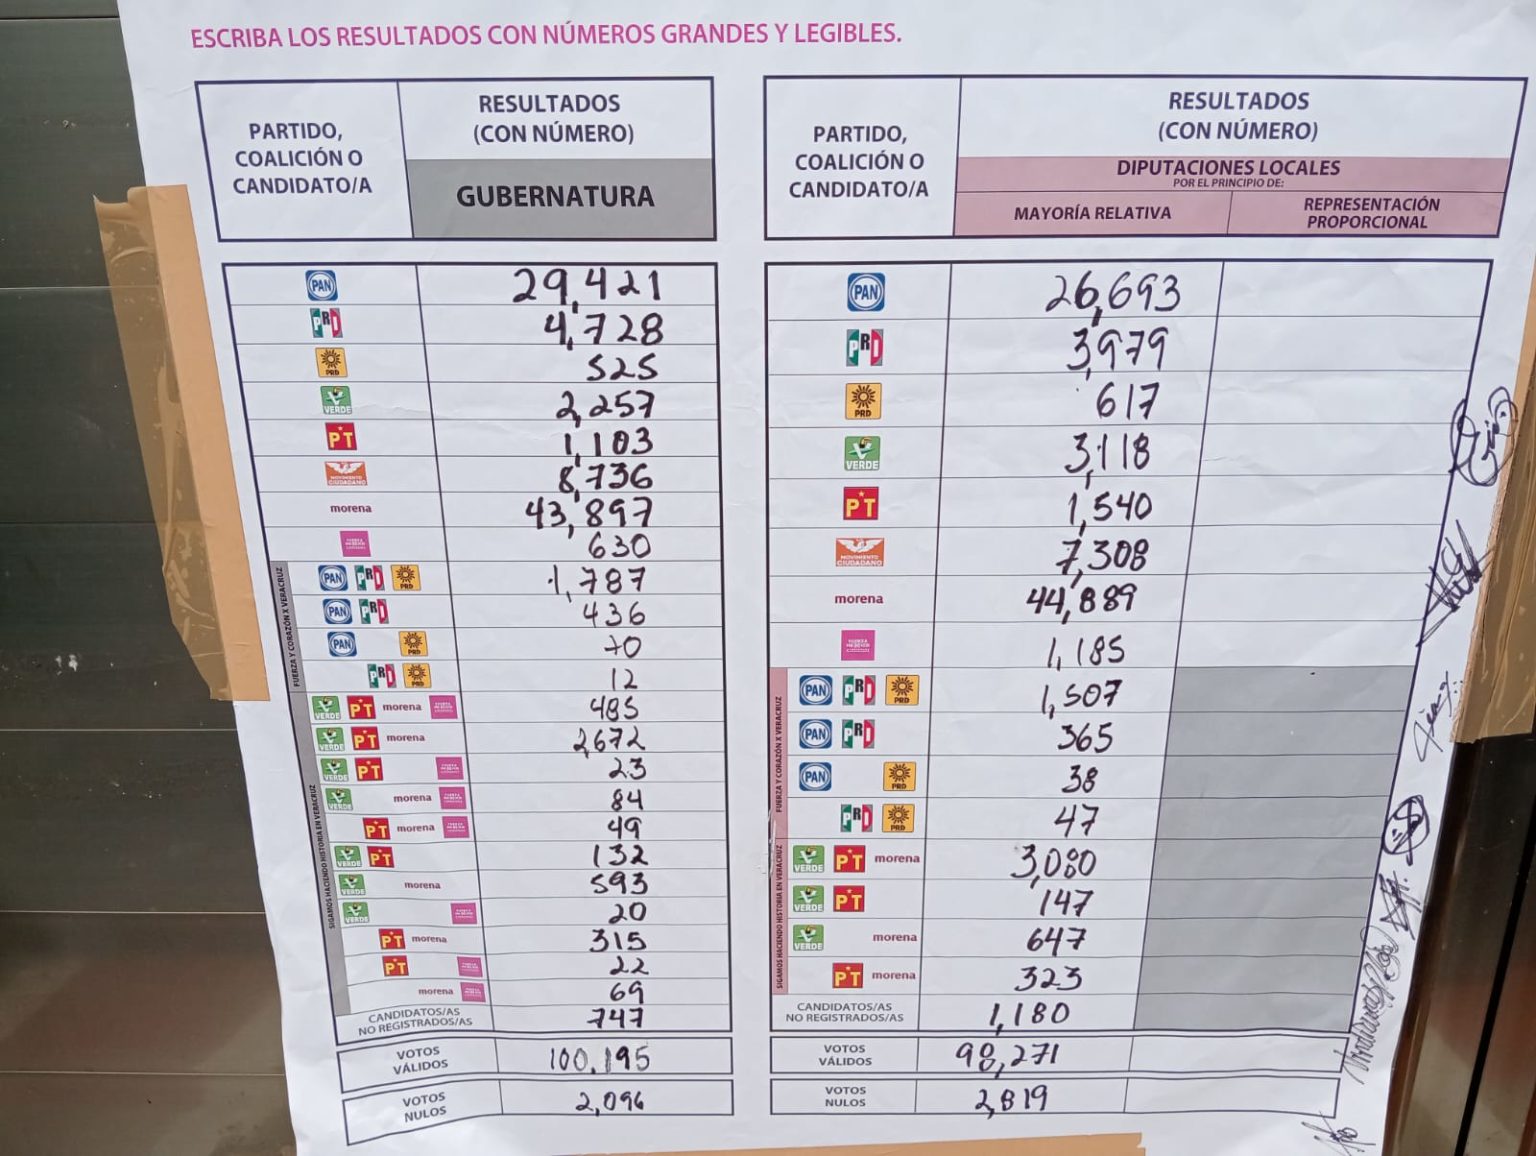 ESCRIBA LOS RESULTADOS CON NÚMEROS GRANDES Y LEGIBLES.
PARTIDO, COALICIÓN O CANDIDATO/A
RESULTADOS (CON NÚMERO)
GUBERNATURA
PAN 29,421
PRD 4,728
PRD 525
VERDE 2,257
PT 1,103
MOVIMIENTO CIUDADANO 8,736
morena 43,897
630
FUERZA Y CORAZÓN X VERACRUZ
PAN PRD PRD 1,787
PAN PRD 436
PAN PRD 70
PRD PRD 12
SIGAMOS HACIENDO HISTORIA EN VERACRUZ
VERDE PT morena 485
VERDE PT morena 2,672
VERDE PT 23
VERDE morena 84
PT morena 49
VERDE PT 132
VERDE morena 593
VERDE 20
PT morena 315
PT 22
morena 69
CANDIDATOS/AS NO REGISTRADOS/AS 747
VOTOS VÁLIDOS 100,195
VOTOS NULOS 2,096
PARTIDO, COALICIÓN O CANDIDATO/A
RESULTADOS (CON NÚMERO)
DIPUTACIONES LOCALES
POR EL PRINCIPIO DE:
MAYORÍA RELATIVA
REPRESENTACIÓN PROPORCIONAL
PAN 26,693
PRD 3,979
PRD 617
VERDE 3,118
PT 1,540
MOVIMIENTO CIUDADANO 7,308
morena 44,889
1,185
FUERZA Y CORAZÓN X VERACRUZ
PAN PRD PRD 1,507
PAN PRD 365
PAN PRD 38
PRD PRD 47
SIGAMOS HACIENDO HISTORIA EN VERACRUZ
VERDE PT morena 3,080
VERDE PT 147
VERDE morena 647
PT morena 323
CANDIDATOS/AS NO REGISTRADOS/AS 1,180
VOTOS VÁLIDOS 98,271
VOTOS NULOS 2,819